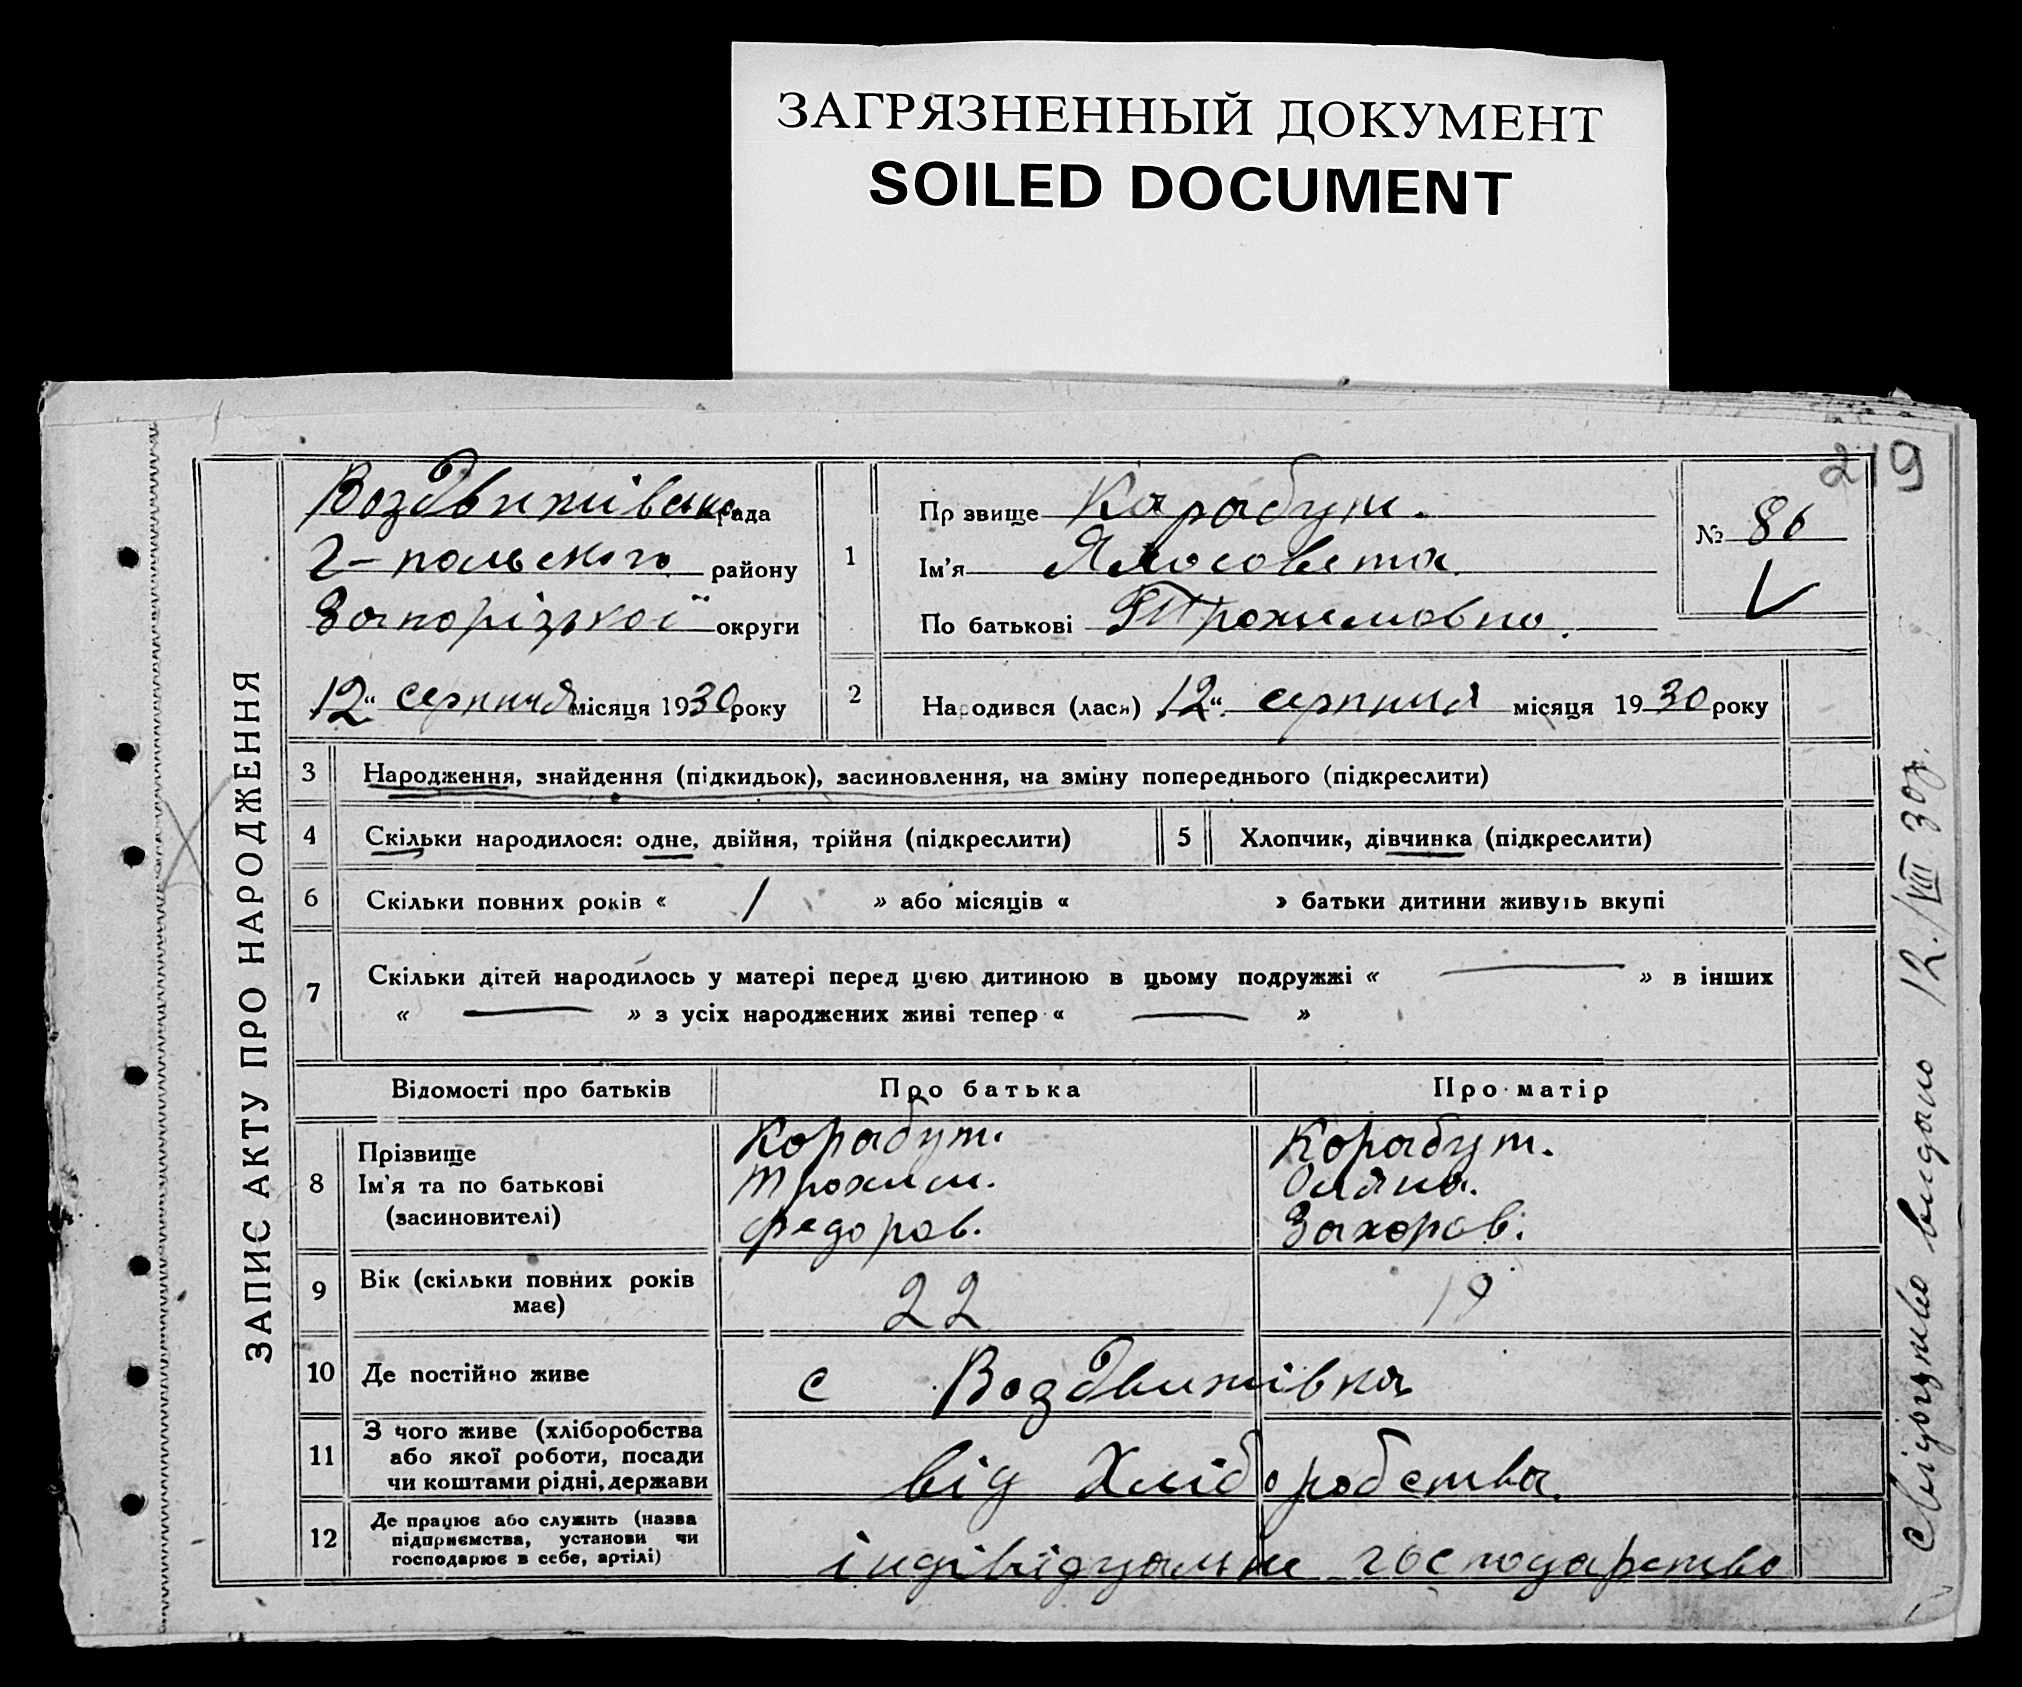 ЗАГРЯЗНЕННЫЙ ДОКУМЕНТ
SOILED DOCUMENT
219
ЗАПИС АКТУ ПРО НАРОДЖЕННЯ
Воздвижівська рада
Г-польского району
Запорізької округи
12 " серпня місяця 1930 року
1
Пр звище Карабут.
Ім'я
По батькові Трохимовна.
№ 86
2
Народився (лася) 12 " серпня місяця 1930 року
3 Народження, знайдення (підкидьок), засиновлення, на зміну попереднього (підкреслити)
4 Скільки народилося: одне, двійня, трійня (підкреслити)
5 Хлопчик, дівчинка (підкреслити)
6 Скільки повних років « 1 » або місяців « » батьки дитини живуть вкупі
7 Скільки дітей народилось у матері перед цією дитиною в цьому подружжі « — » в інших
« — » з усіх народжених живі тепер « — »
Відомості про батьків Про батька Про матір
8 Прізвище
Ім'я та по батькові
(засиновителі)
Корабут.
Трохим.
Федоров.
Корабут.
Захоров.
9 Вік (скільки повних років
має)
22
19
10 Де постійно живе с Воздвижівка
11 З чого живе (хліборобства
або якої роботи, посади
чи коштами рідні, держави
від Хліборобства.
12 Де працює або служить (назва
підприємства, установи чи
господарює в себе, артілі)
індівідуальне господарство
видано 12./VIII 30р.